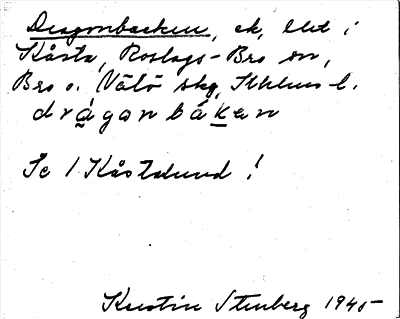 Dragonbacken, ek, låt i
Kåsta, Roslags-Bro sn,
Bro o. Vätö skg, Sthlms l.
drágonbàkan
Se 1 Kåstalund!
Kerstin Stenberg 1945